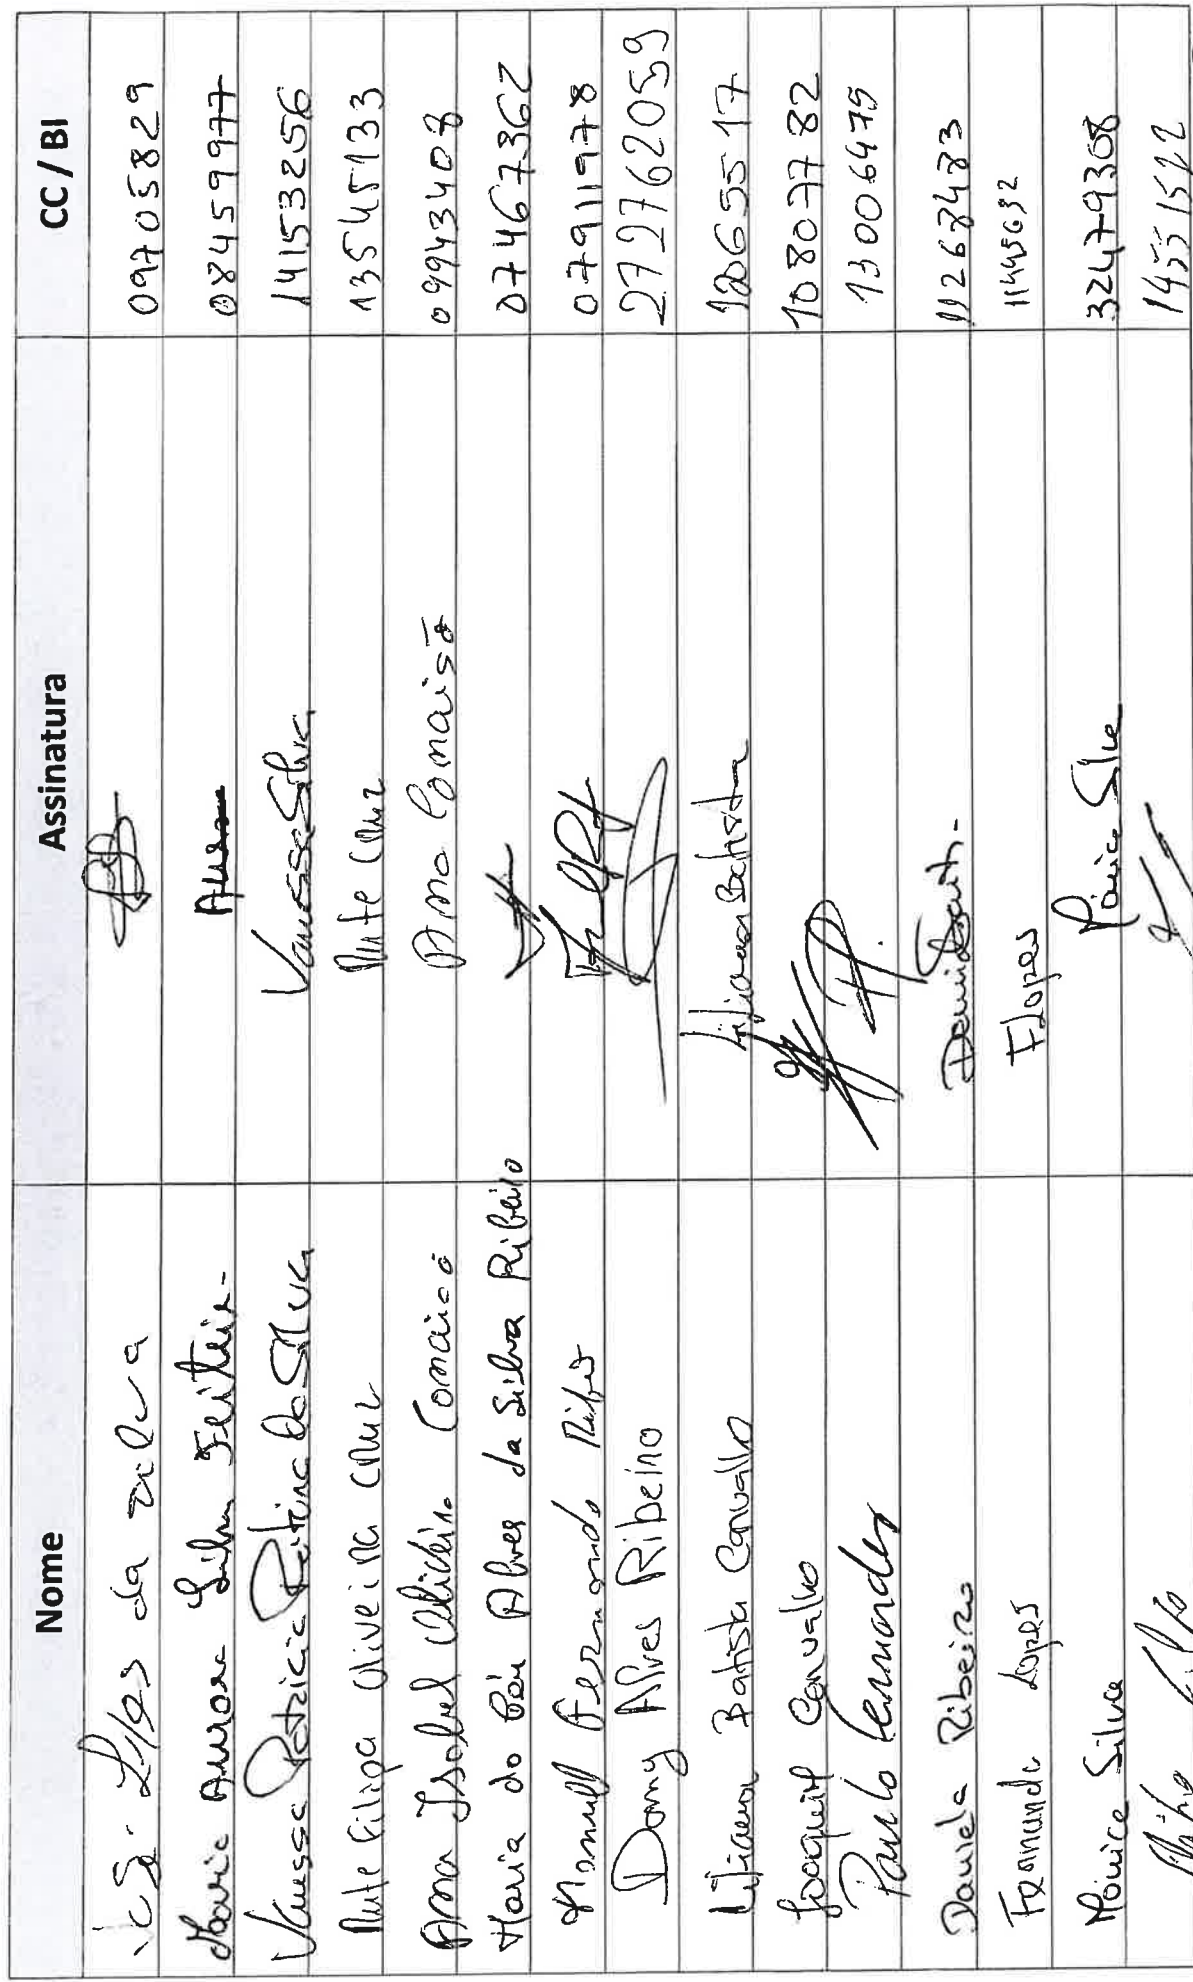 Nome Assinatura CC / BI
José Lopes da Silva 09705829
Maria Aurora Silva Aurora 08459977
Vanessa Patrícia da Silva Vanessa Silva 14153256
Rute Filipa Oliveira Cruz Rute Cruz 13545133
Ana Isabel Conaisó Ana Conaisó 09943408
Maria do Céu Alves da Silva Ribeiro 07467362
Manuel Fernando 07911978
Dany Alves Ribeiro 272762059
Liliana Batista Carvalho Liliana Batista 12065517
Joaquim Carvalho 10807782
Paulo Fernandes 13006475
Daniela Ribeiro 11267483
Fernanda Lopes FLopes 11445632
Mónica Silva Mónica Silva 32479308